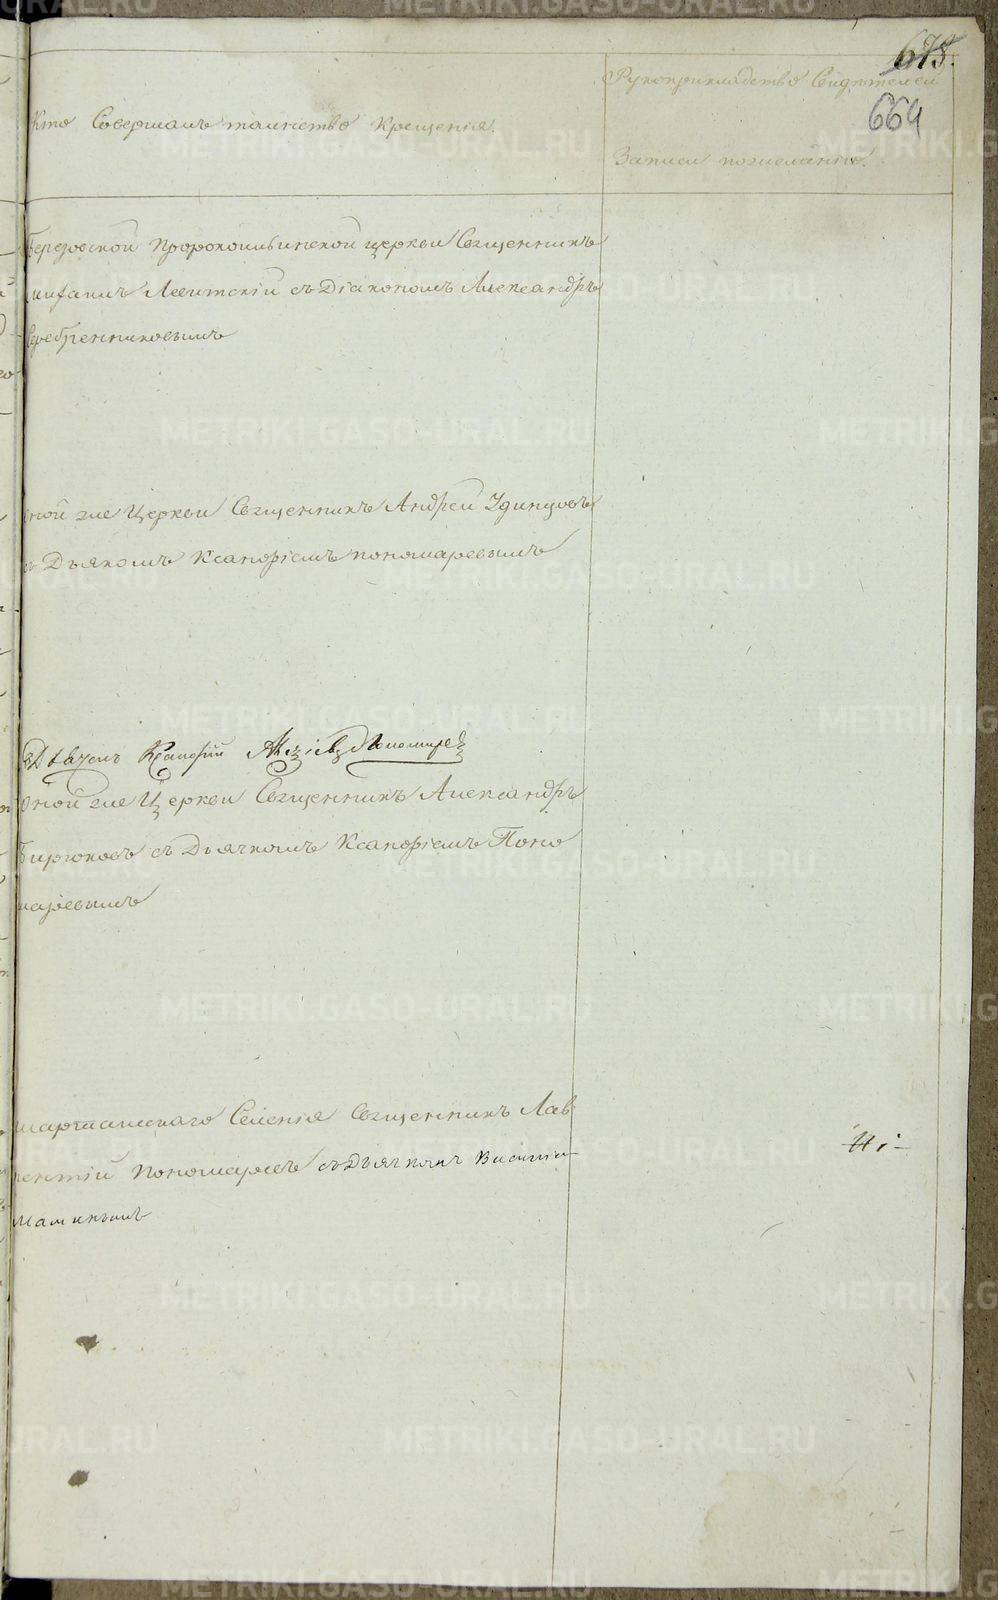 673.
664
Кто Совершалъ таинство Крещенія.
Рукоприкладство Свидѣтелей
Записи по желанію.
Березовской Пророкоильинской церкви Священникъ
Михаилъ Левитскій съ Діакономъ Александръ
Серебренниковымъ
оной же Церкви Священникъ Андрей Удинцовъ
съ Дьякомъ Ксанфіемъ пономаревымъ
Дьячекъ Ксанфій Пономаревъ
оной же Церкви Священникъ Александръ
Бирюковъ съ Дьячкомъ Ксанфіемъ Поно
маревымъ
шарташскаго Селенія Священникъ Лав
рентій Пономаревъ съ Дьячкомъ Василіем
Маминымъ
METRIKI.GASO-URAL.RU